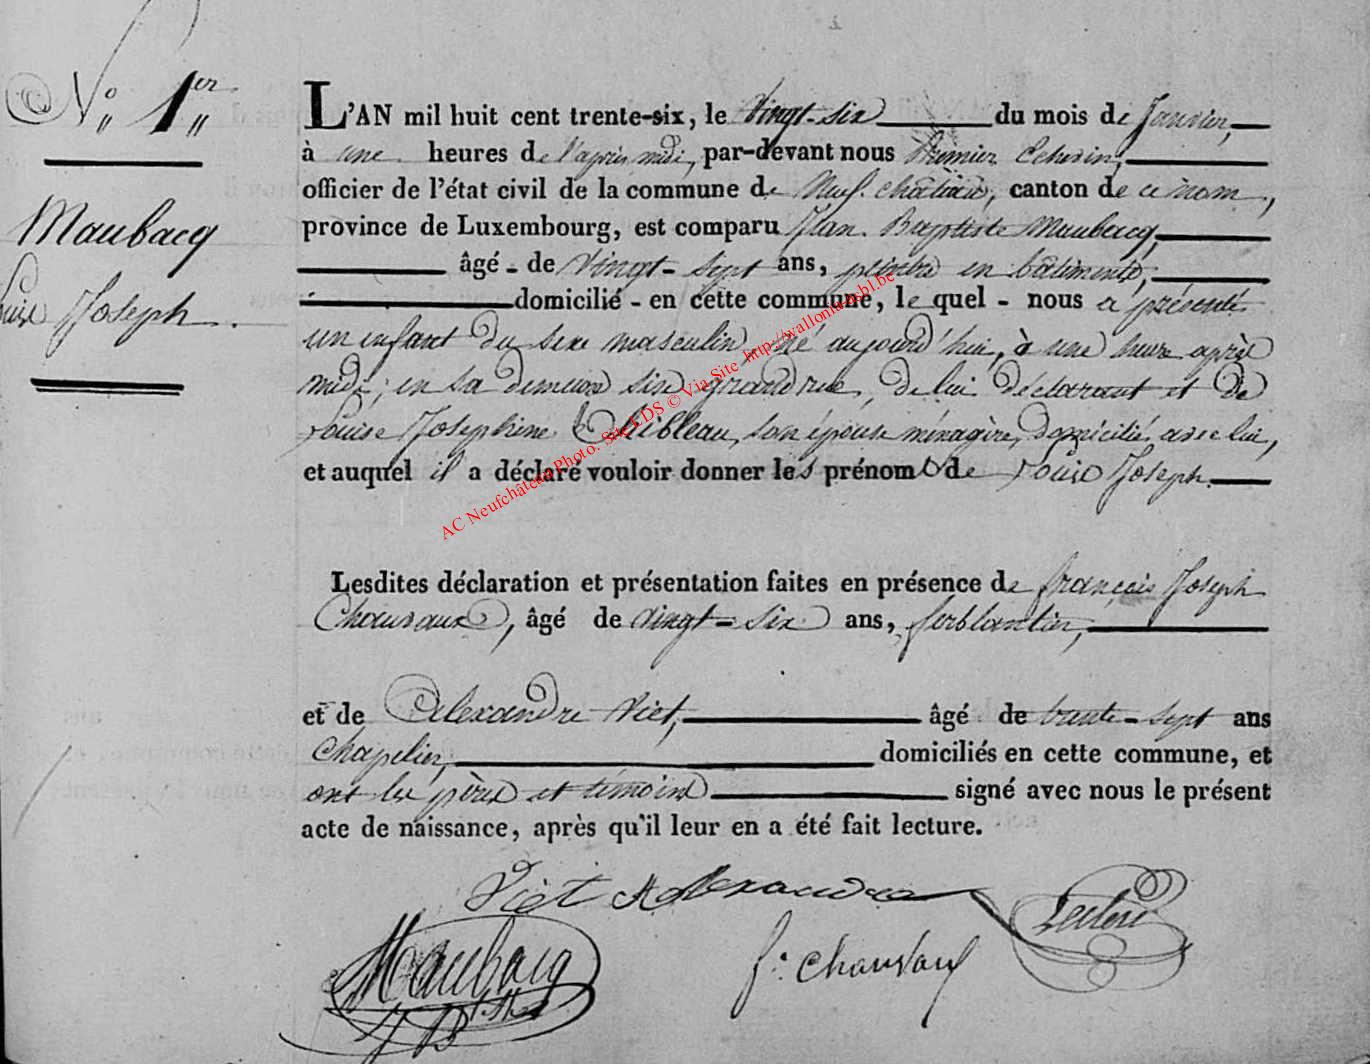 N° 1er
Maubacq
Louis Joseph.
L'AN mil huit cent trente-six, le Vingt-six du mois de Janvier,
à une heures de l'après midi, par-devant nous Premier Echevin,
officier de l'état civil de la commune de Neufchâteau, canton de ce nom,
province de Luxembourg, est comparu Jean Baptiste Maubacq,
âgé - de Vingt-sept ans, peintre en bâtiments,
domicilié - en cette commune, le quel - nous a présenté
un enfant du sexe masculin, né aujourd'hui, à une heure après
midi, en sa demeure sise grand rue, de lui déclarant et de
Louise Josephine Thibleau, son épouse ménagère, domiciliée avec lui,
et auquel il a déclaré vouloir donner les prénoms de Louis Joseph.
Lesdites déclaration et présentation faites en présence de françois Joseph
Chauvaux, âgé de Vingt-six ans, ferblantier,
et de Alexandre Viet, âgé de trente-sept ans
Chapelier, domiciliés en cette commune, et
ont les père et témoins signé avec nous le présent
acte de naissance, après qu'il leur en a été fait lecture.
Viet Alexandre
Leclerc
Maubacq
JB
f: Chauvaux
AC Neufchâteau Photo. Site LDS © Via Site http://wallonia-asbl.be